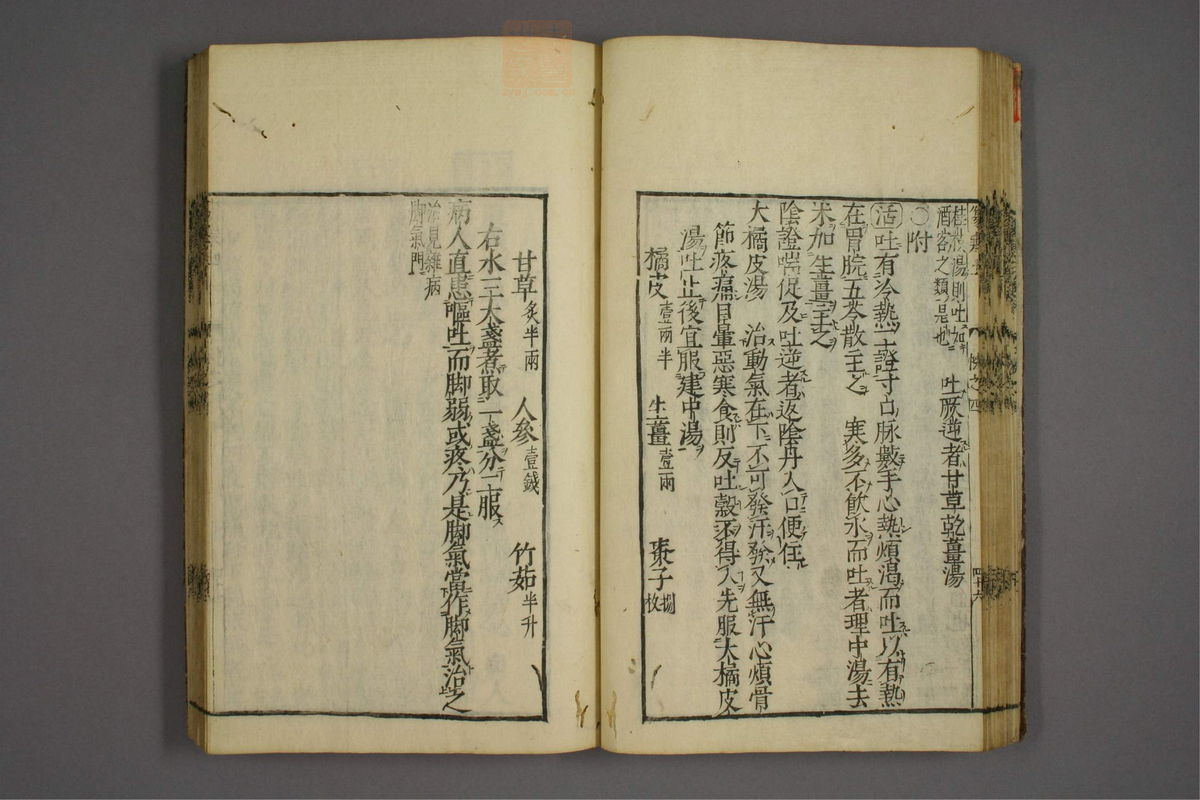 桂枝湯則吐如
酒客之類是也 吐厥逆者甘草乾薑湯
○附
活吐有冷熱二證寸口脉數手心熱煩渴而吐以有熱
在胃脘五苓散主之 寒多不飲水而吐者理中湯去
朮加生薑主之
陰證喘促及吐逆者返陰丹入口便住
大橘皮湯 治動氣在下不可發汗發又無汗心煩骨
節疼痛目暈惡寒食則反吐穀不得入先服大橘皮
湯吐止後宜服建中湯
橘皮壹兩半 生薑壹兩 棗子捌枚
甘草炙半兩 人參壹錢 竹茹半升
右水三大盞煮取一盞分二服
病人直患嘔吐而脚弱或疼乃是脚氣當作脚氣治之
治見雜病
脚氣門